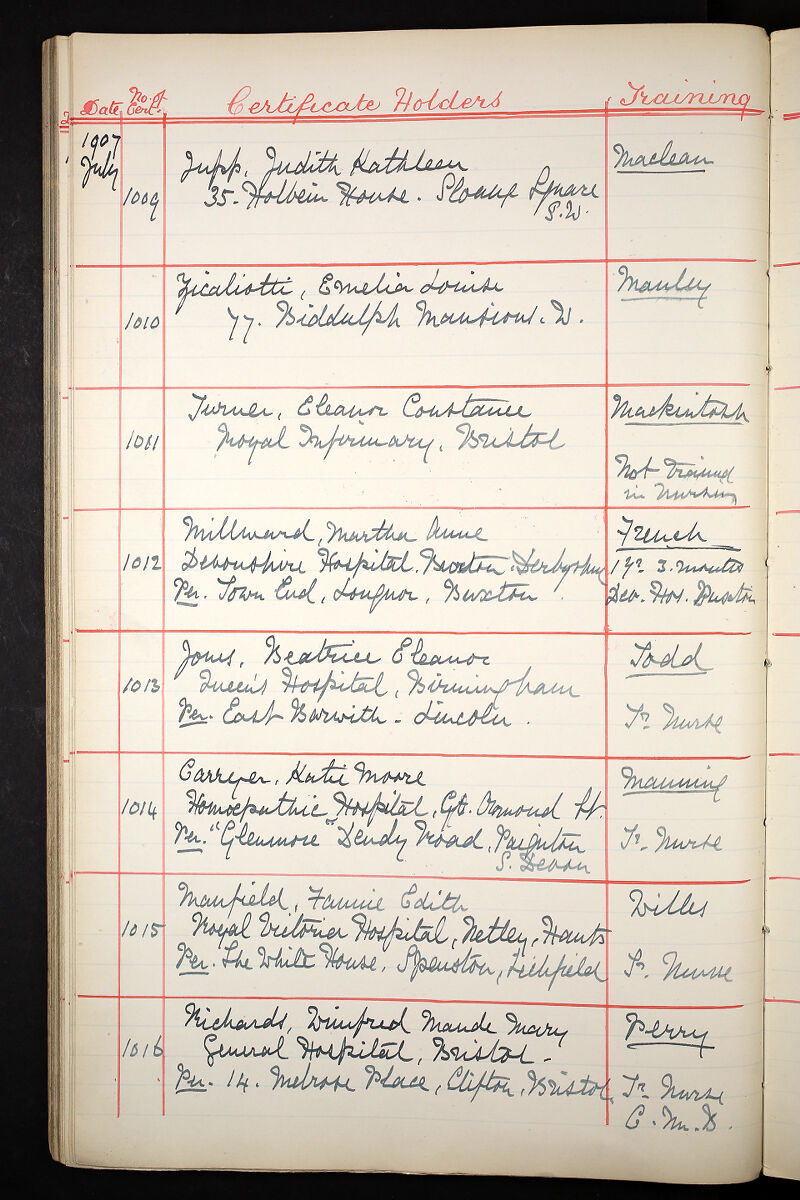 Date No. of Cert. Certificate Holders Training
1907
July
1009 Jupp, Judith Kathleen Maclean
35. Holbein House. Sloane Square
S.W.
1010 Zicaliotti, Emelia Louise Manley
77. Biddulph Mansions. W.
1011 Turner, Eleanor Constance Mackintosh
Royal Infirmary, Bristol
Not trained
in Nursing
1012 Millward, Martha Anne French
Devonshire Hospital. Buxton. Derbyshire 1 yr. 3. months
Per. Town End, Longnor, Buxton. Dev. Hos. Buxton
1013 Jones, Beatrice Eleanor Todd
Queen's Hospital, Birmingham
Per. East Barwith - Lincoln. Tr. Nurse
1014 Carryer, Katie Moore Manning
Homoepathic Hospital, Gt. Ormond St.
Per. "Glenmore" Dendy Road, Paignton Tr. Nurse
S. Devon
1015 Manfield, Fannie Edith Willes
Royal Victoria Hospital, Netley, Hants
Per. The White House, Lichfield Tr. Nurse
1016 Richards, Winifred Maude Mary Perry
General Hospital, Bristol -
Per. 14. Melrose Place, Clifton, Bristol. Tr. Nurse
C. M. B.